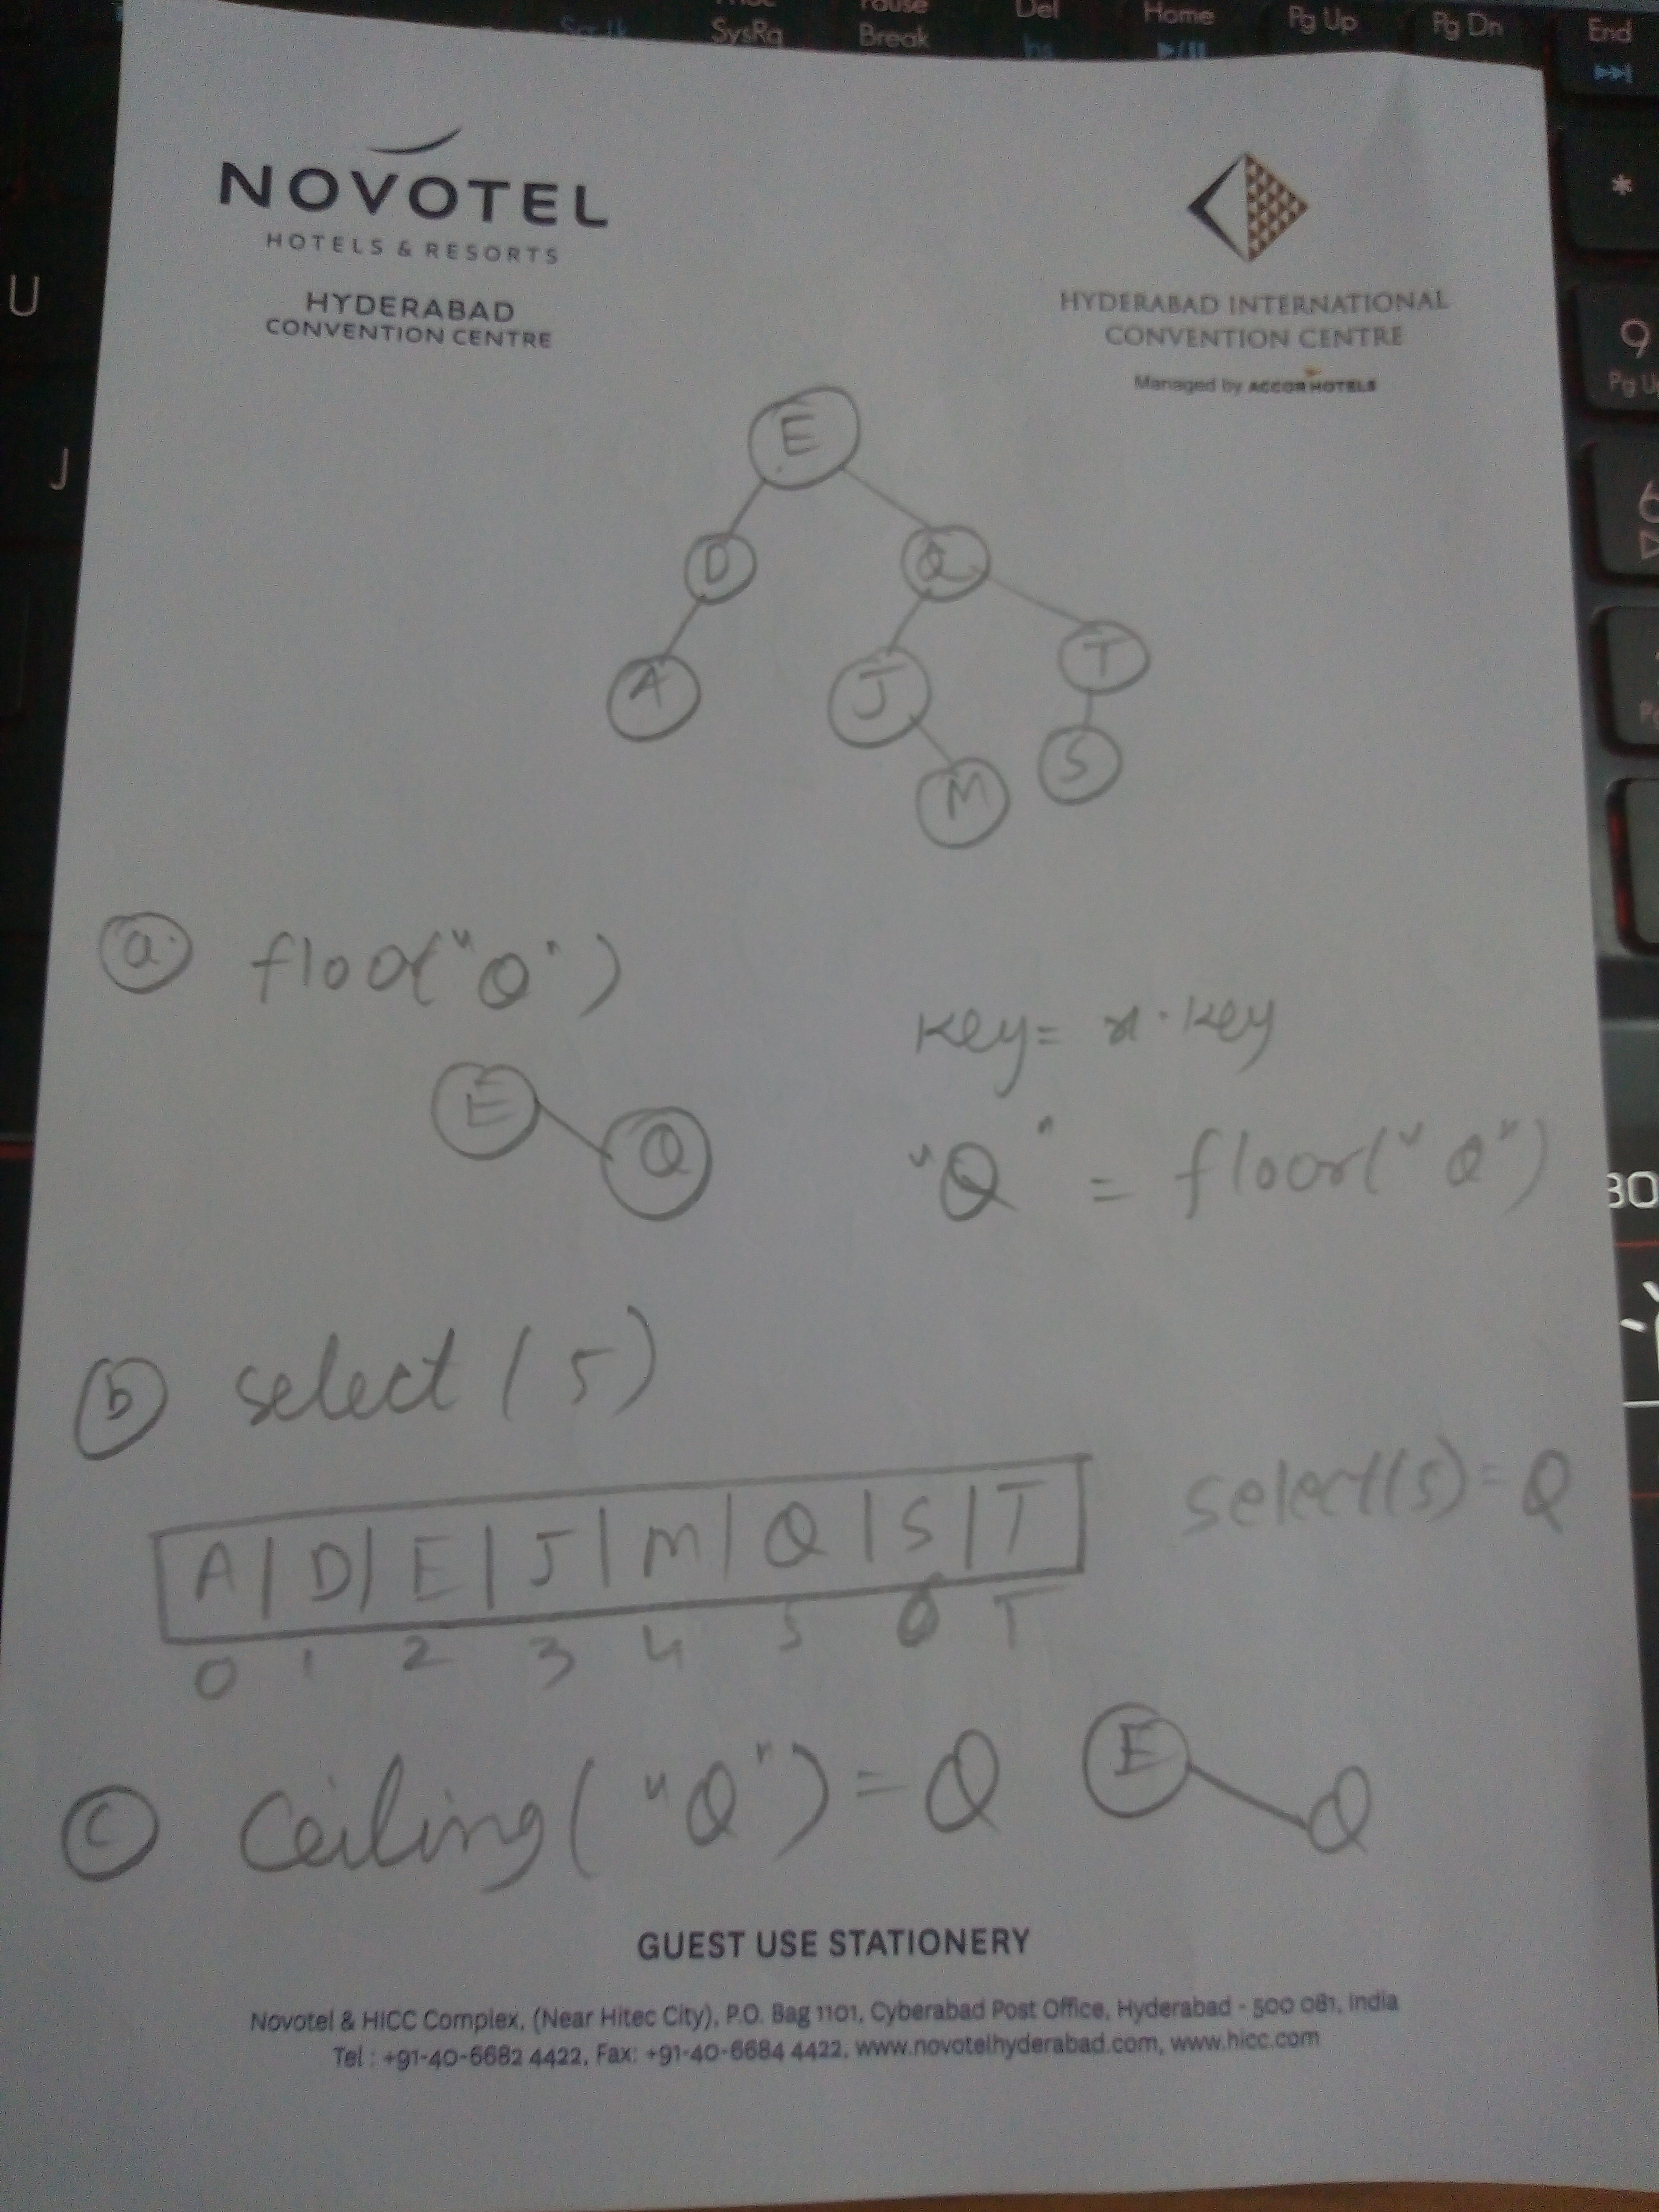 SysRq
Pause
Break
Del
Ins
Home
Pg Up
Pg Dn
End
U
J
*
9
6
NOVOTEL
HOTELS & RESORTS
HYDERABAD
CONVENTION CENTRE
HYDERABAD INTERNATIONAL
CONVENTION CENTRE
Managed by ACCORHOTELS
E
D Q
A J T
M S
a floor("Q")
E Q
key = x.key
"Q" = floor("Q")
b select(5)
A | D | E | J | M | Q | S | T
0 1 2 3 4 5 6 7
select(5) = Q
c Ceiling("Q") = Q E Q
GUEST USE STATIONERY
Novotel & HICC Complex, (Near Hitec City), P.O. Bag 1101, Cyberabad Post Office, Hyderabad - 500 081, India
Tel : +91-40-6682 4422, Fax: +91-40-6684 4422, www.novotelhyderabad.com, www.hicc.com